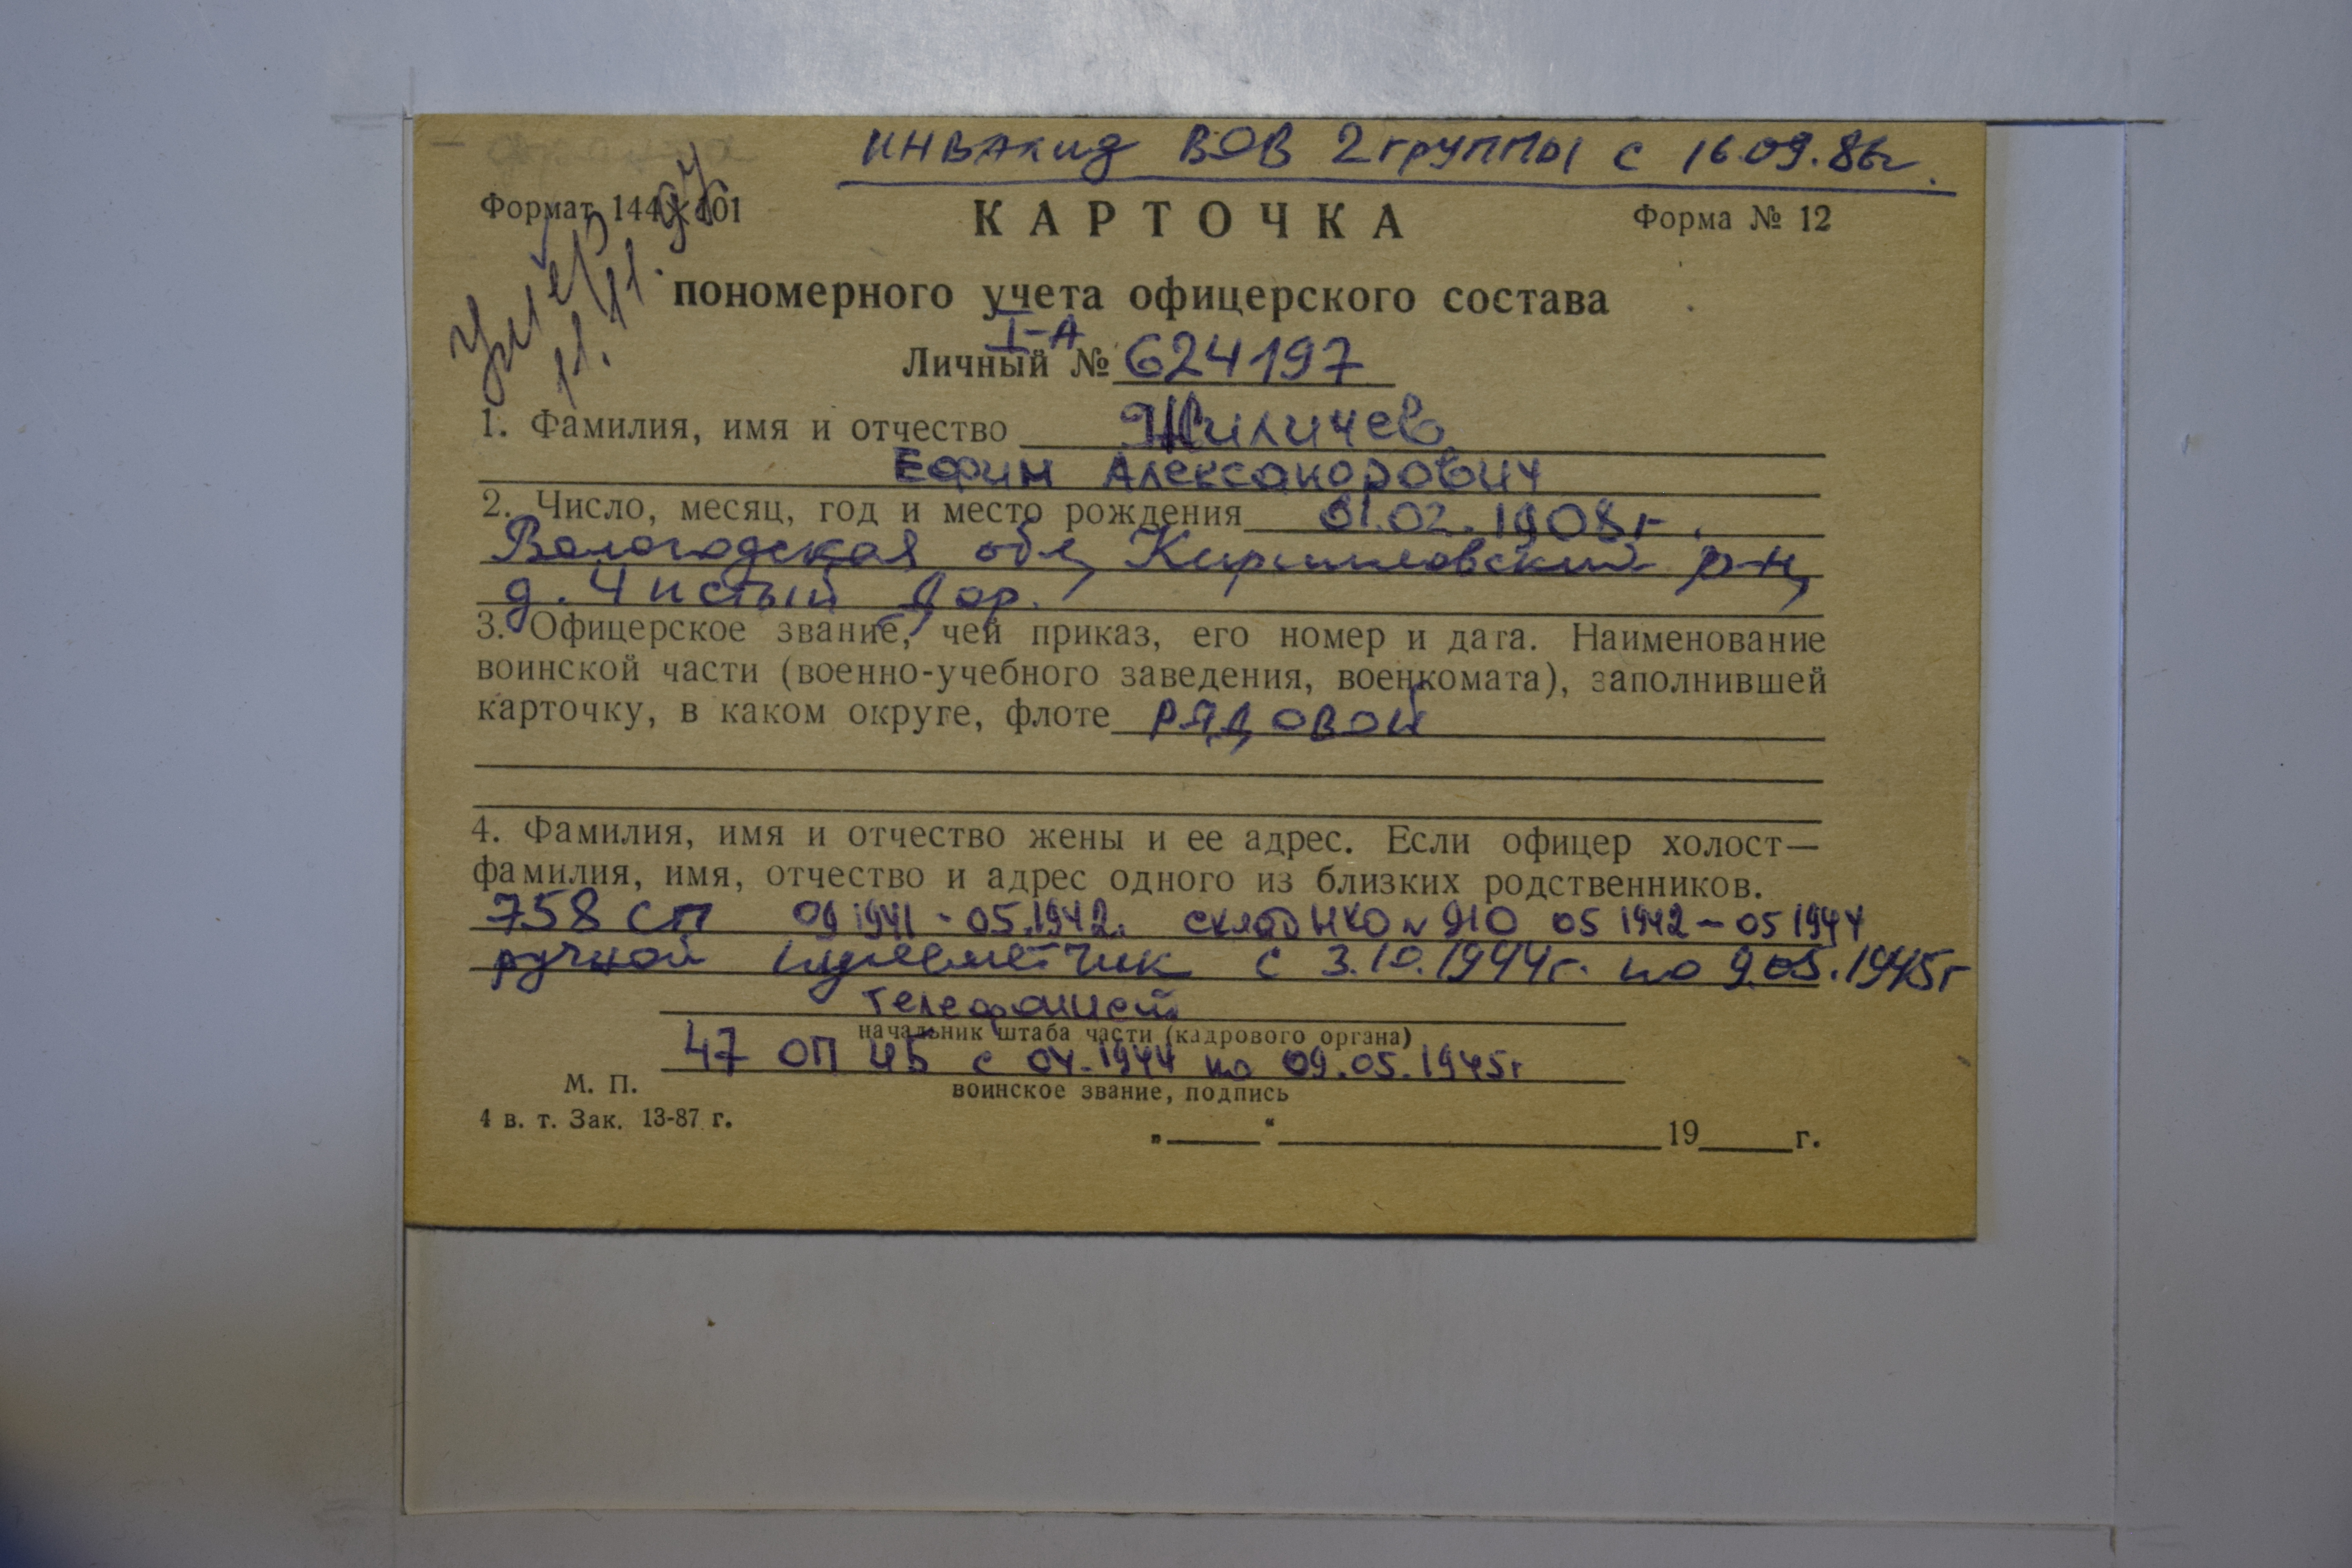 инвалид ВОВ 2 группы с 16.09.86г.
Формат 144×101
Форма № 12
КАРТОЧКА
Умер
11.11.97
пономерного учета офицерского состава
I-А
Личный № 624197
1. Фамилия, имя и отчество Жиличев
Ефим Александрович
2. Число, месяц, год и место рождения 01.02.1908г.
Вологодская обл, Кирилловский р-н,
д. Чистый Дор.
3. Офицерское звание, чей приказ, его номер и дата. Наименование
воинской части (военно-учебного заведения, военкомата), заполнившей
карточку, в каком округе, флоте рядовой
4. Фамилия, имя и отчество жены и ее адрес. Если офицер холост—
фамилия, имя, отчество и адрес одного из близких родственников.
758 СП 09 1941 - 05.1942. склад НКО № 910 05 1942 – 05 1944
ручной пулеметчик с 3.10.1944г. по 9.05.1945г
телефонист
начальник штаба части (кадрового органа)
47 ОП ИБ с 04.1944 по 09.05.1945г
воинское звание, подпись
М. П.
4 в. т. Зак. 13-87 г.
„ “ 19 г.